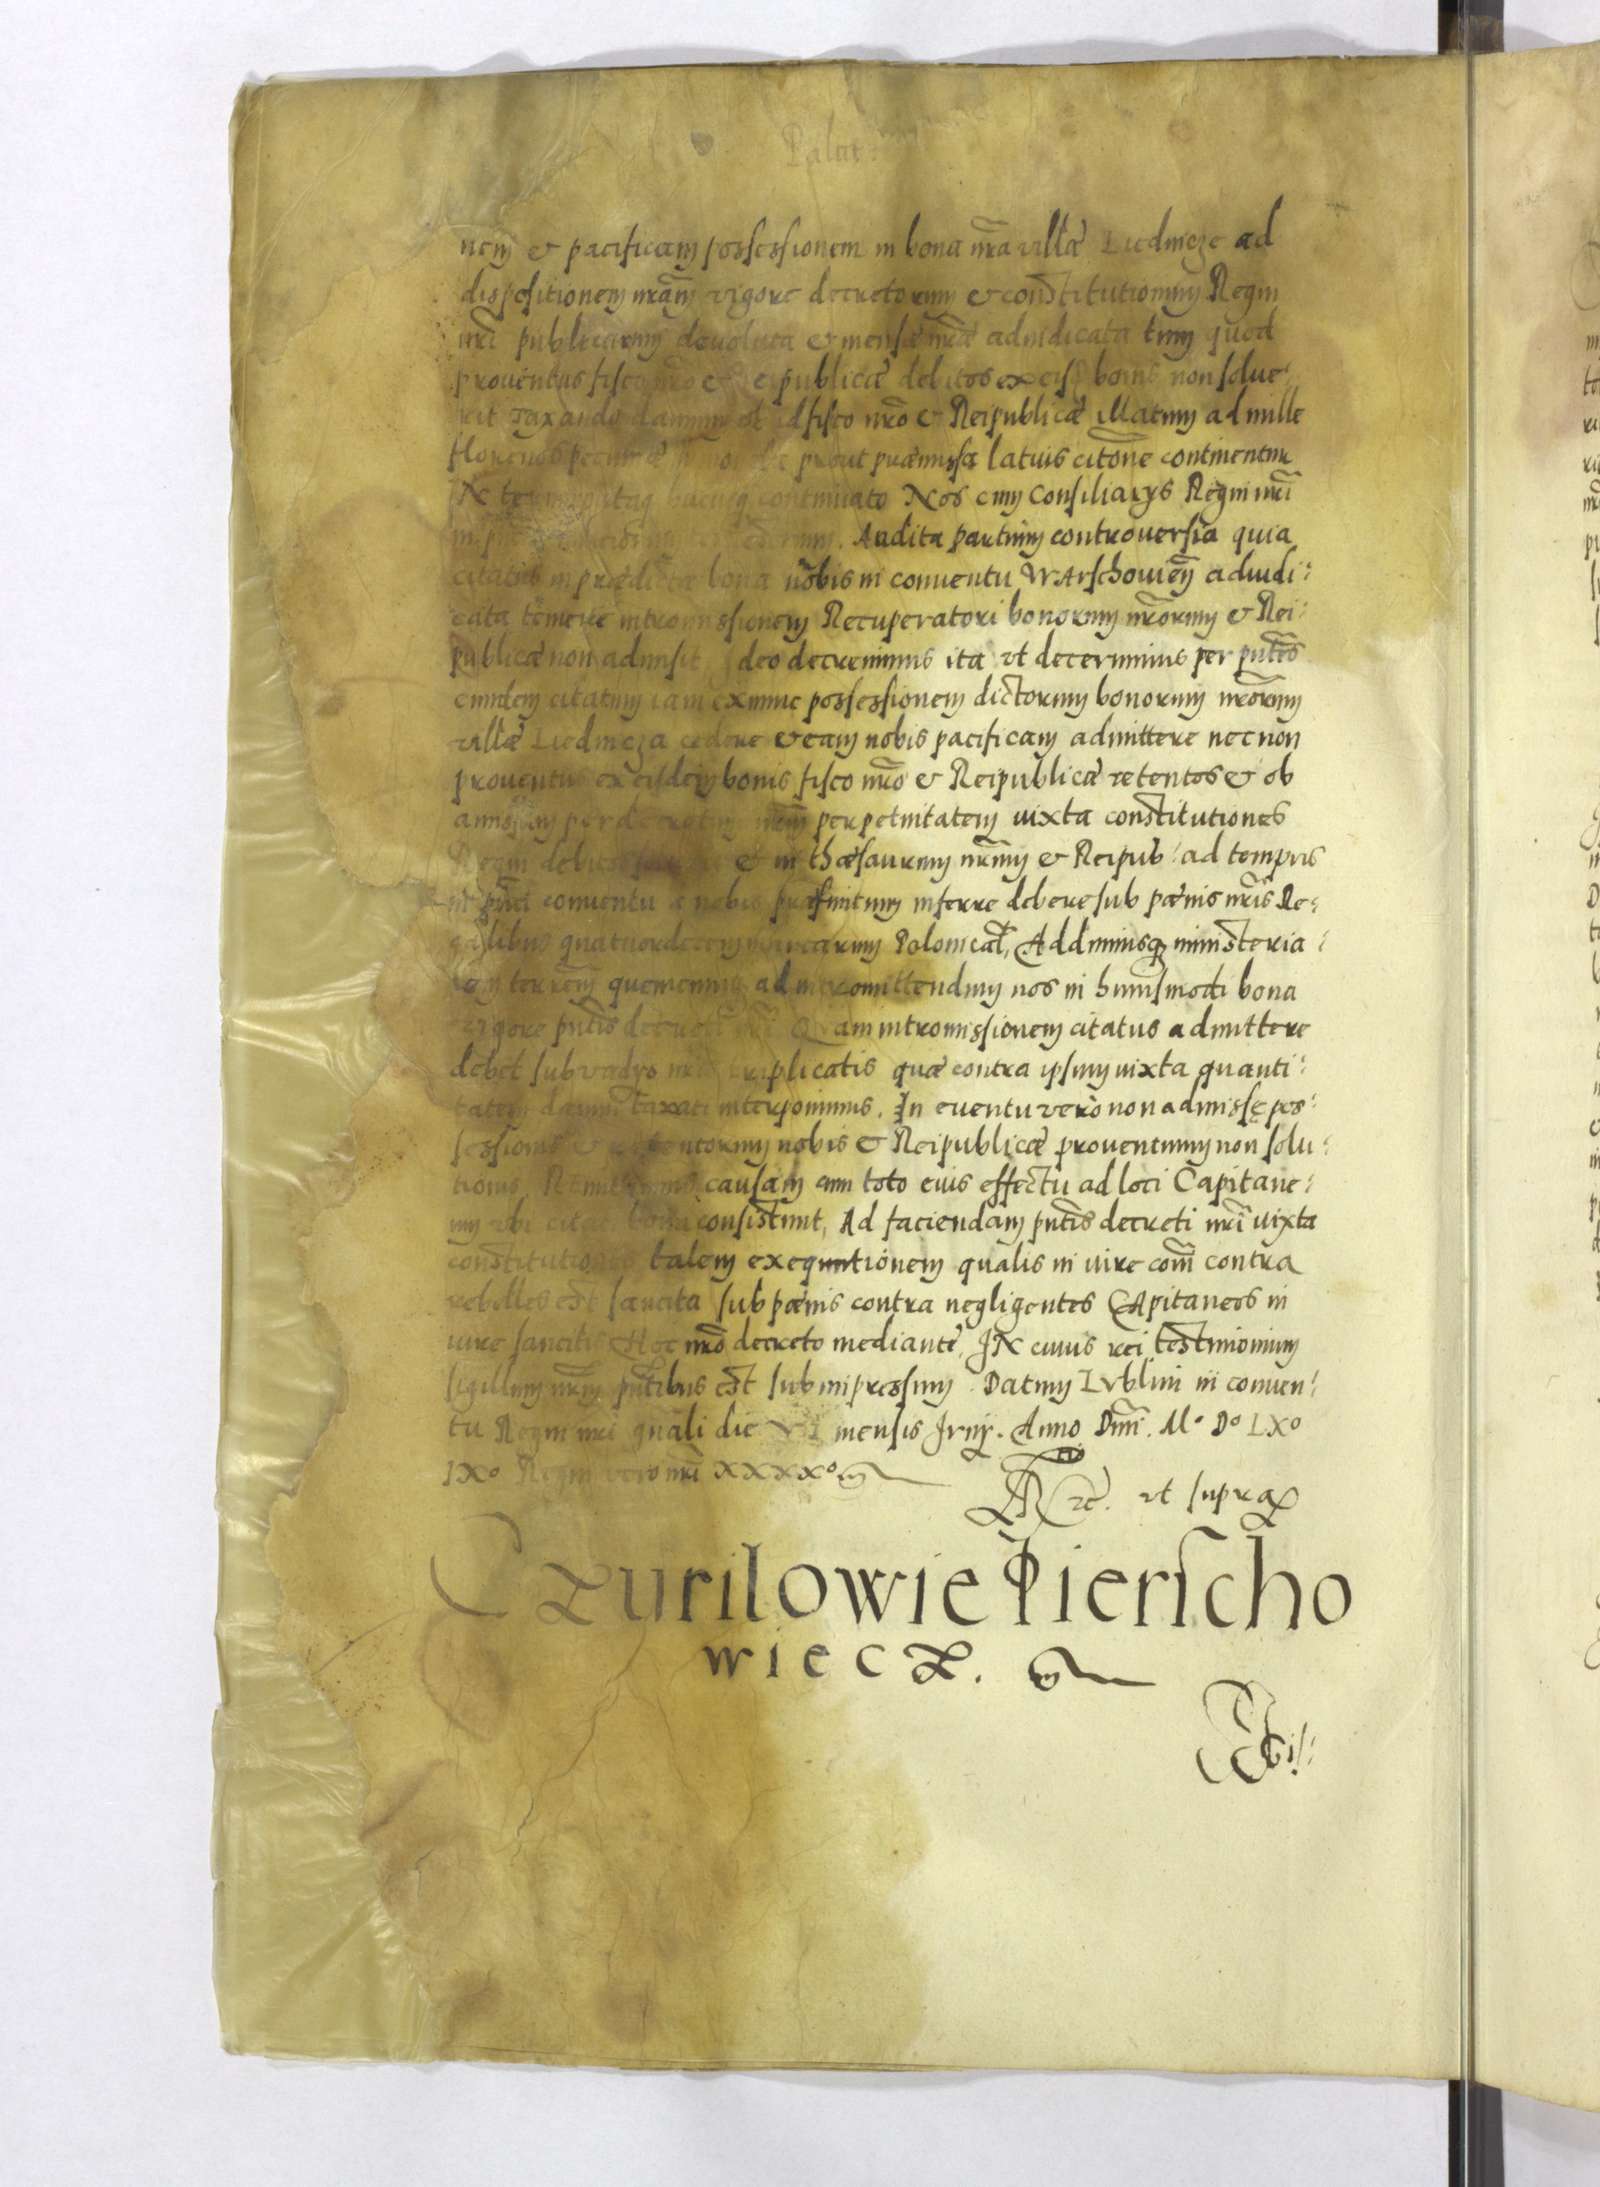 Palat:
nem & pacificam possessionem in bona nr̃a villæ Liednicze ad
dispositionem nr̃am vigore decretorum & constitutionum Regni
nr̃i publicarum devoluta & mensæ nr̃æ adiudicata tum quod
proventus fisco nr̃o & Reipublicæ debitos ex eis bonis non solve:
rit Taxando damnum ob id fisco nr̃o & Reipublicæ illatum ad mille
florenos pecuniæ prout præmissa latius citõne continentur
IN termino itaq hacusq continuato Nos cum Consiliarys Regni nr̃i
Audita partium controversia quia
citatus in prædicta bona nobis in conventu Warschovieñ adiudi:
cata temere intromissionem Recuperatori bonorum nr̃orum & Rei:
publicæ non admisit Ideo decrevimus ita vt decernimus per pñtes
eundem citatum iam exnunc possessionem dictorum bonorum nr̃orum
villæ Liednicza cedere & eam nobis pacificam admittere necnon
proventus ex eisdem bonis fisco nr̃o & Reipublicæ retentos & ob
perpetuitatem iuxta constitutiones
Regni & in thæsaurum nr̃um & Reipub: ad tempus
in pñti conventu a nobis præfinitum inferre debere sub pænis nr̃is Re:
galibus quatuordecem marcarum Polonical, Addimusq ministeria:
lem terreñ quemcunq ad intromittendum nos in huiusmodi bona
vigore pñtis decreti nr̃i Quam intromissionem citatus admittere
debet sub vadys nr̃is triplicatis quæ contra ipsum iuxta quanti:
tatem damni taxati interponimus. In eventu vero non admissę pos:
sessionis & retentorum nobis & Reipublicæ proventuum non solu:
tionis Remittimus causam cum toto eius effectu ad loci Capitane:
um vbi citat bona consistunt, Ad faciendam pñtis decreti nr̃i iuxta
constitutiones talem exequutionem qualis in iure com̃i contra
rebelles est sancita sub pænis contra negligentes Capitaneos in
iure sancitis Hoc nr̃o decreto mediante, IN cuius rei testimonium
sigillum nr̃um pñtibus est subimpressum Datum Lvblini in conven:
tu Regni nr̃i gñali die VI mensis Irnÿ. Anno Dñi. Mº Dº LXº
IXº Regni vero nr̃i XXXXº
Rc. vt supra
Czurilowie Pierscho
wiecz.